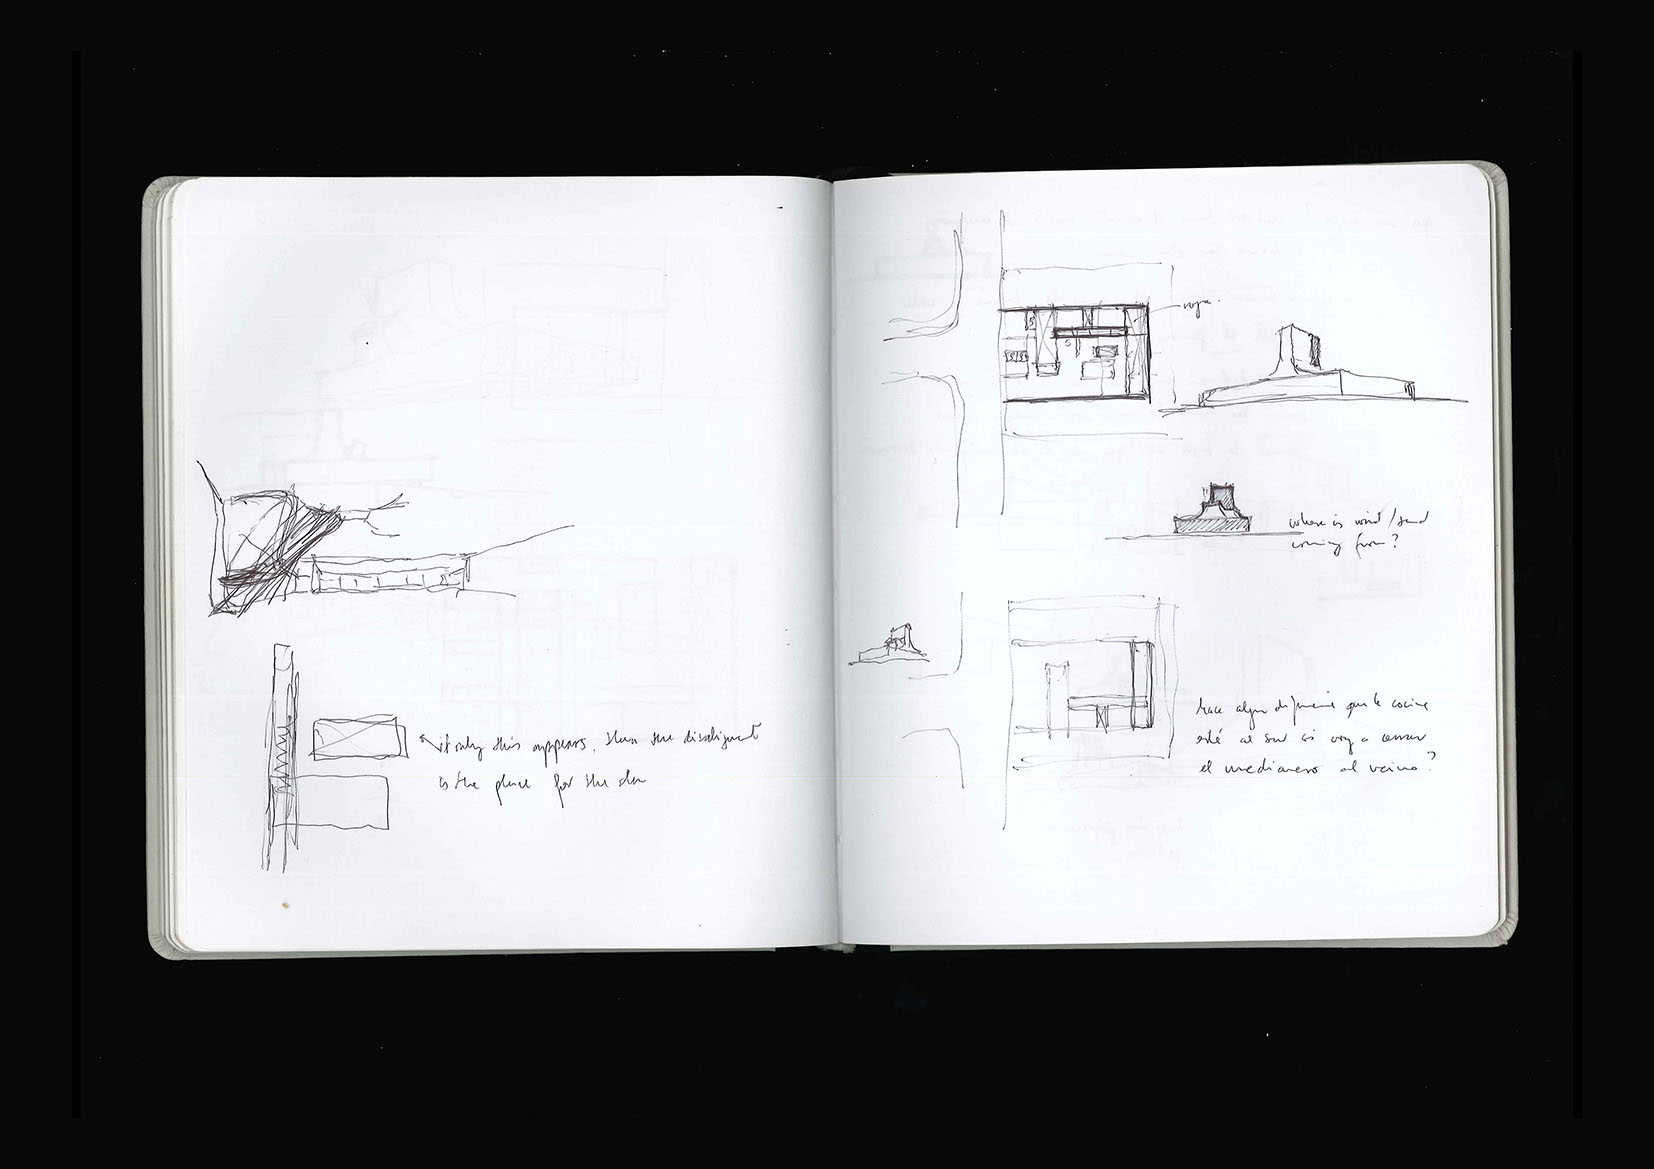 if only this appears, then the disalignment
is the place for the
ropa.
where is wind / sand
coming from?
hace algun diferencia que la cocina
esté al sur si voy a cerrar
el medianero al vecino?
S
S